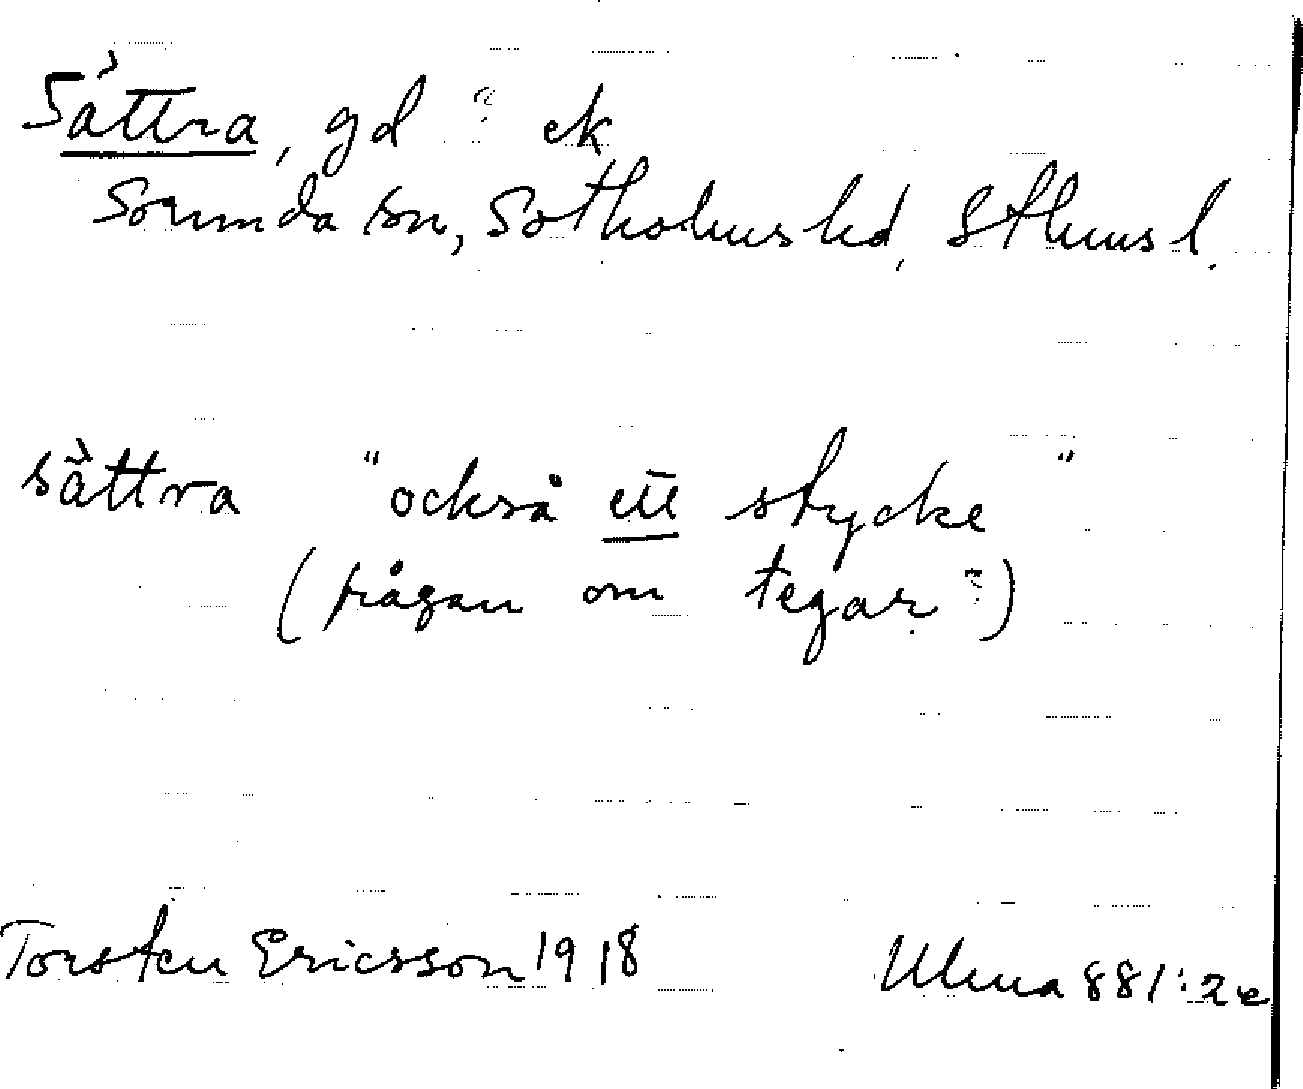 Sättra, gd ? ek
Sorunda sn, Sotholms hd, Sthms l.
sättra "också ett stycke"
(frågan om tegar?)
Torsten Ericsson 1918 Ulma 881:2e